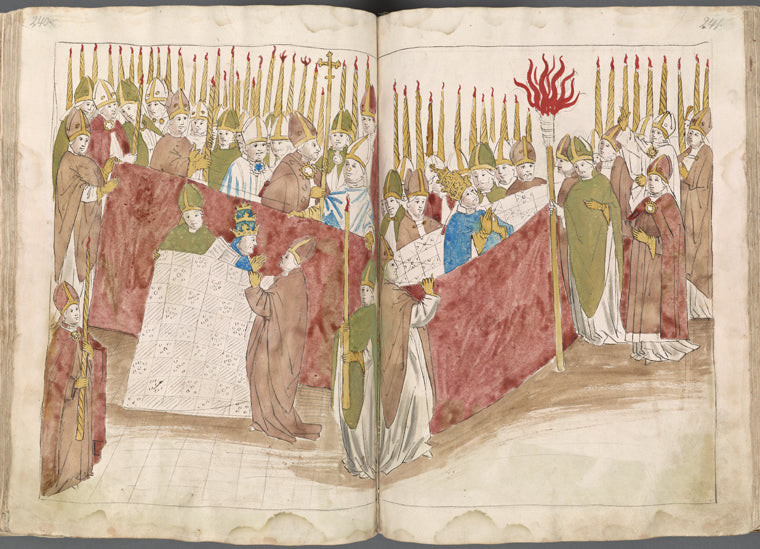 240
241